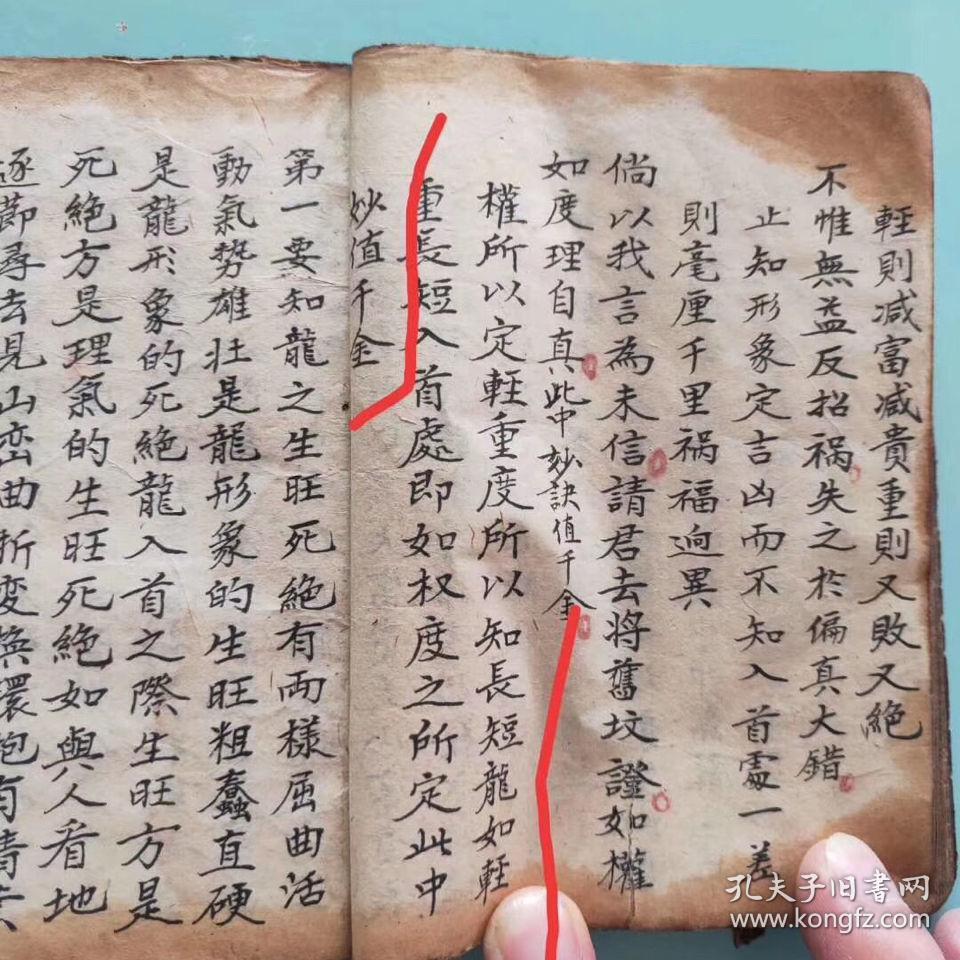 輕則减富减貴重則又敗又絕
不惟無益反招禍失之於偏真大錯
止知形象定吉凶而不知入首處一差
則毫厘千里祸福逈異
倘以我言為未信請君去將舊坟證如權
如度理自真此中妙訣值千金
權所以定輕重度所以知長短龍如輕
重長短入首處即如权度之所定此中
妙值千金
第一要知龍之生旺死絕有両樣屈曲活
動氣势雄壯是龍形象的生旺粗蠢直硬
是龍形象的死絕龍入首之際生旺方是
死絕方是理氣的生旺死絕如與人看地
逐節尋去見山峦曲折变换環抱有情
孔夫子旧书网
www.kongfz.com